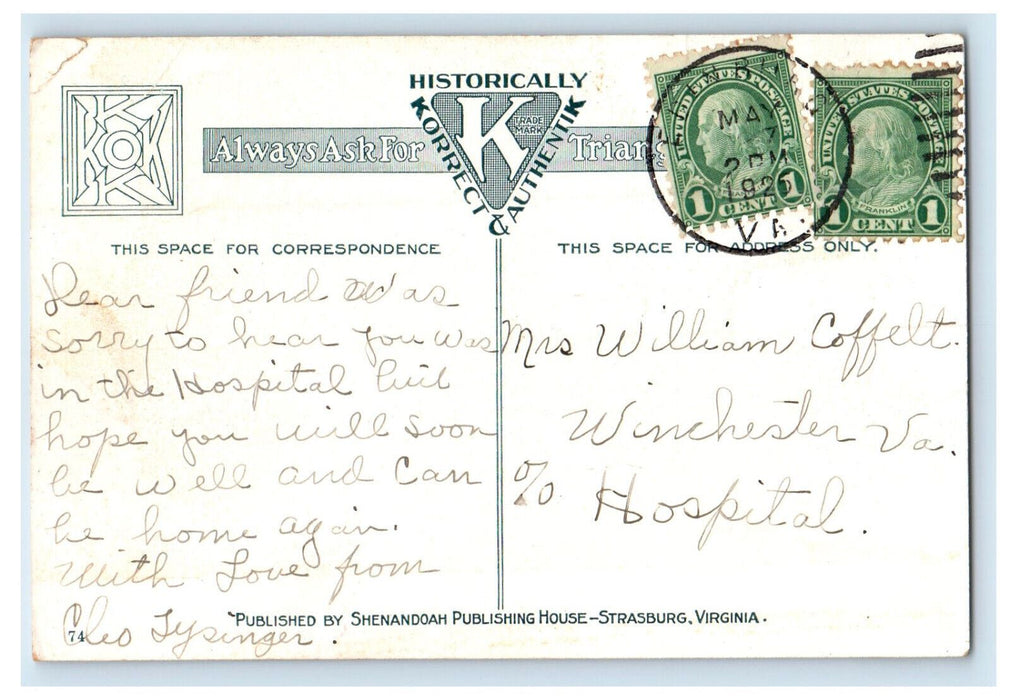 HISTORICALLY
KORRECT & AUTHENTIK
K
TRADE MARK
Always Ask For Trian
KOK
UNITED STATES POSTAGE
1 CENT 1
MA
2 PM
192
VA.
FRANKLIN
1 CENT 1
THIS SPACE FOR CORRESPONDENCE
THIS SPACE FOR ADDRESS ONLY.
Dear friend Was
sorry to hear you was
in the Hospital but
hope you will soon
be well and Can
be home again.
With Love from
Cleo Tysinger.
Mrs William Coffelt.
Winchester Va.
c/o Hospital.
74
PUBLISHED BY SHENANDOAH PUBLISHING HOUSE–STRASBURG, VIRGINIA.